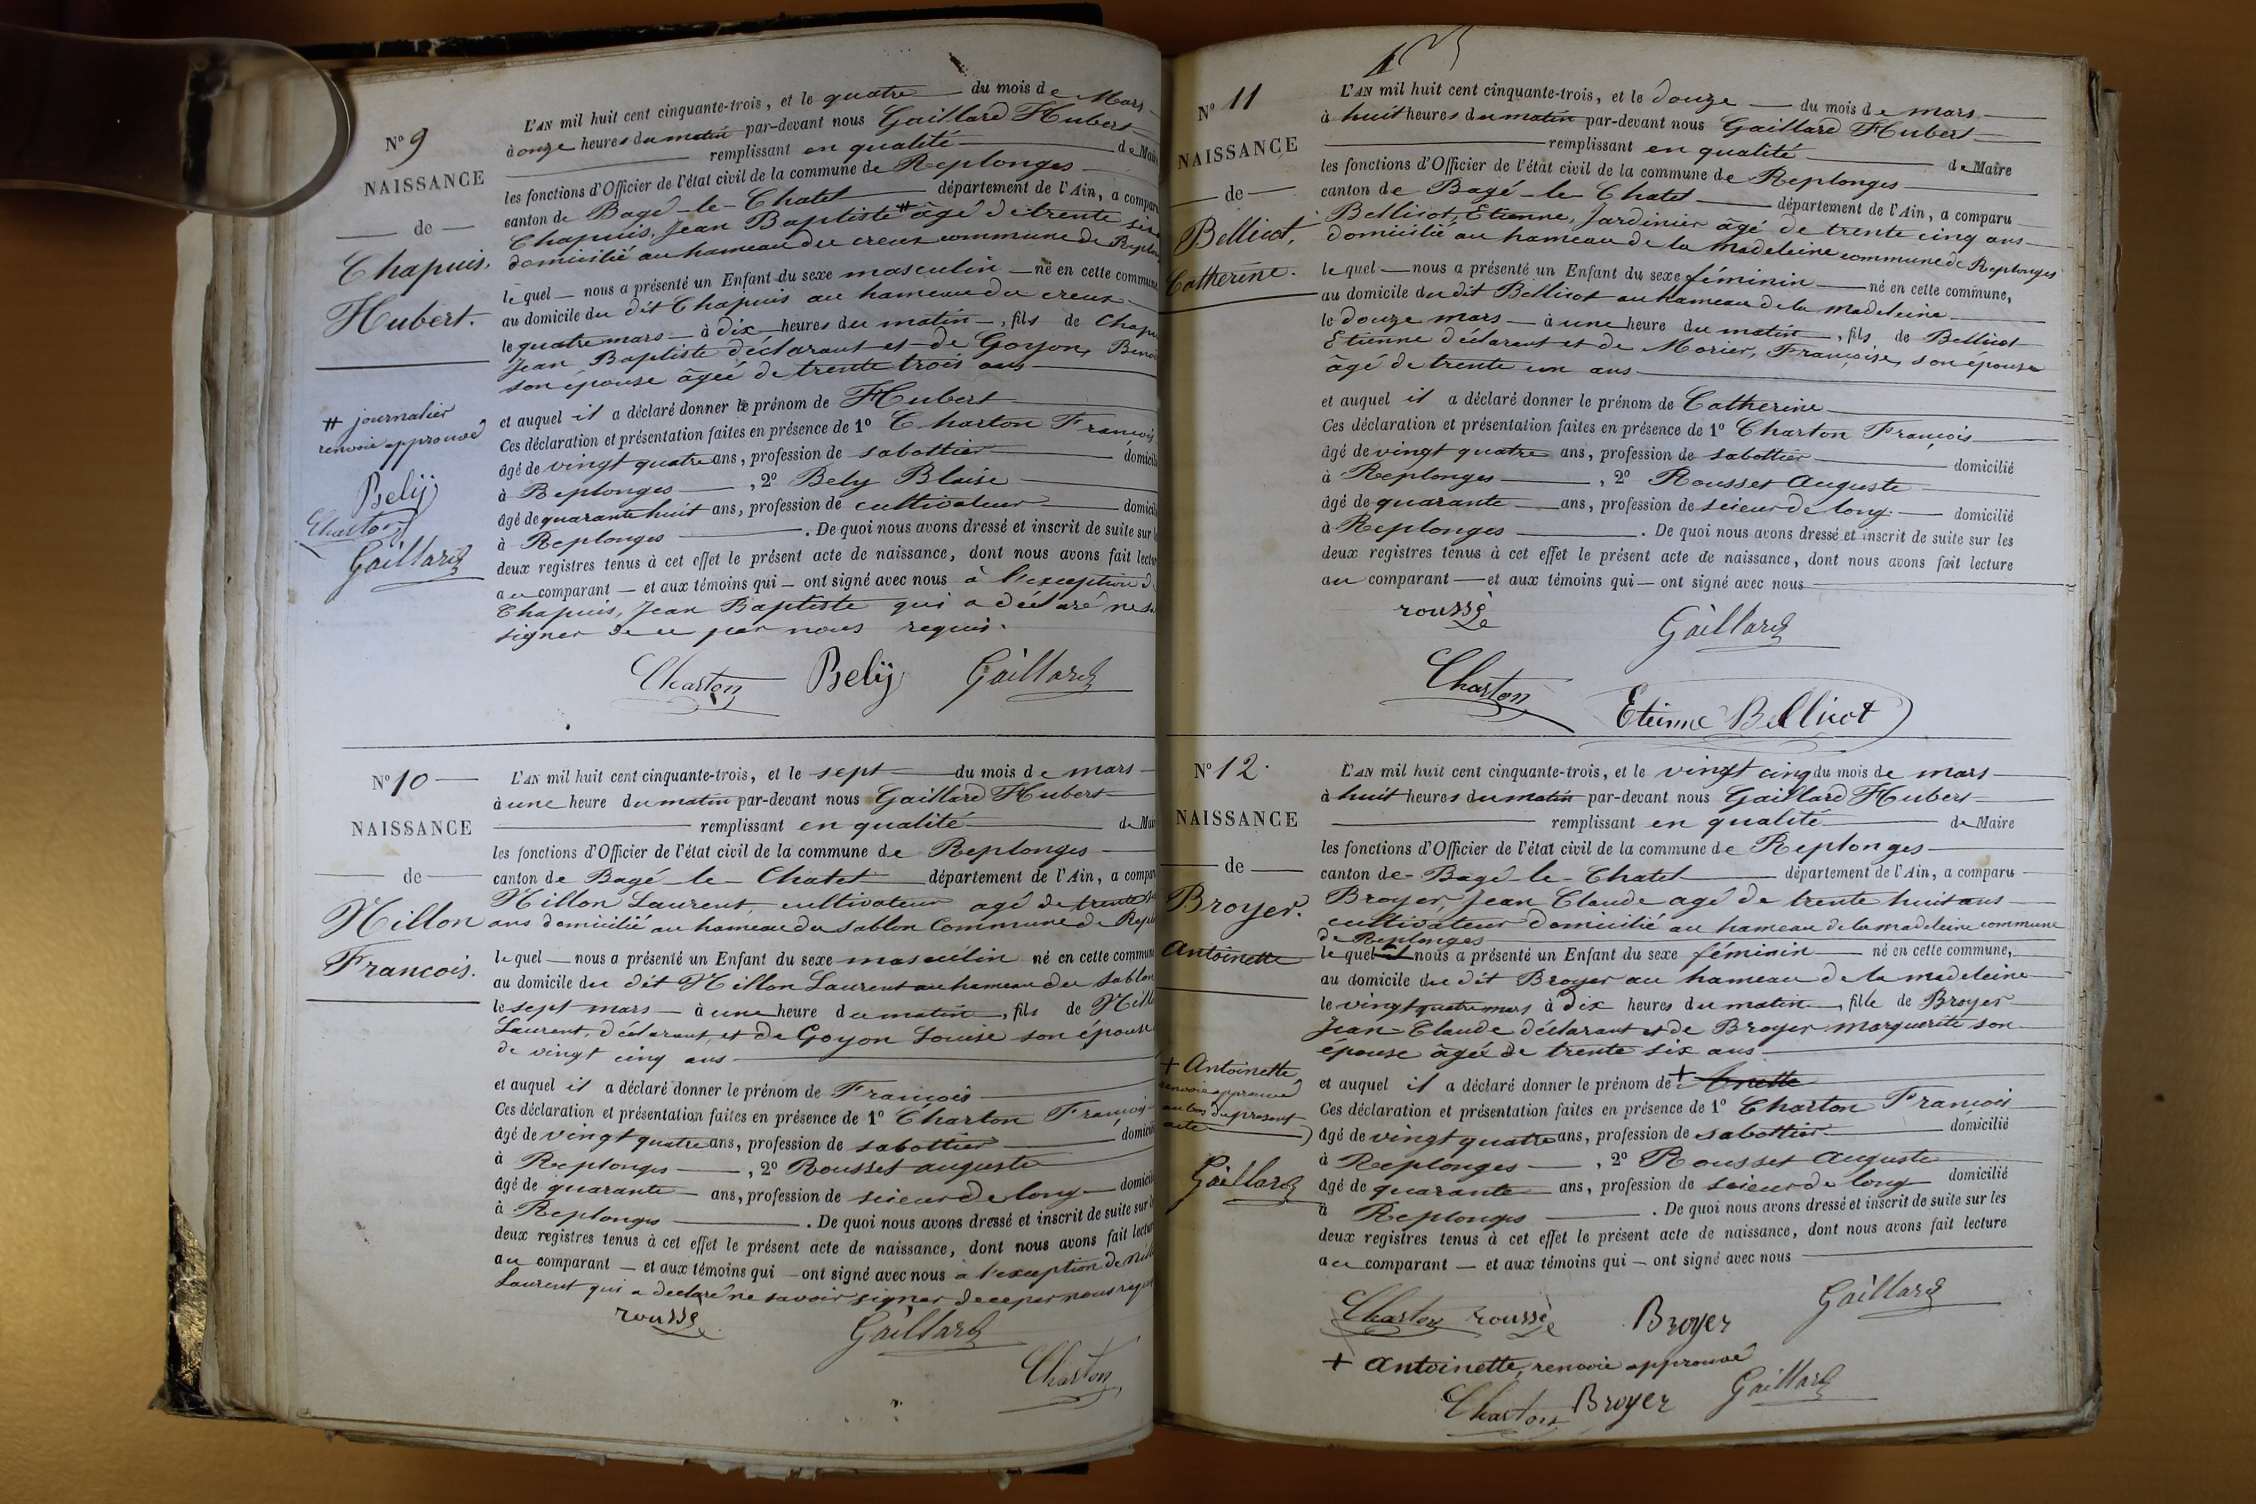 N° 9
NAISSANCE
de
Chapuis,
Hubert.
# journalier
renvoie approuvé
Belÿ
Charton
Gaillard
L'AN mil huit cent cinquante-trois, et le quatre du mois de Mars
à onze heures du matin par-devant nous Gaillard Hubert
remplissant en qualité de Mai
les fonctions d'Officier de l'état civil de la commune de Replonges
canton de Bagé-le-Chatel département de l'Ain, a compar
Chapuis, Jean Baptiste # âgé de trente six
domicilié au hameau du creux commune de Replon
le quel nous a présenté un Enfant du sexe masculin né en cette commune
au domicile du dit Chapuis au hameau du creux
le quatre mars à dix heures du matin, fils de Chapu
Jean Baptiste déclarant et de Goyon, Beno
son épouse âgée de trente trois ans
et auquel il a déclaré donner le prénom de Hubert
Ces déclaration et présentation faites en présence de 1° Charton François
âgé de vingt quatre ans, profession de sabottier domicili
à Replonges, 2° Bely Blaise
âgé de quarante huit ans, profession de cultivateur domicili
à Replonges. De quoi nous avons dressé et inscrit de suite sur l
deux registres tenus à cet effet le présent acte de naissance, dont nous avons fait lectur
au comparant et aux témoins qui ont signé avec nous à l'exception d
Chapuis, Jean Baptiste qui a déclaré ne s
signer de ce par nous requis.
Charton Belÿ Gaillard
N° 10
NAISSANCE
de
Nillon
François.
L'AN mil huit cent cinquante-trois, et le sept du mois de mars
à une heure du matin par-devant nous Gaillard Hubert
remplissant en qualité de Mai
les fonctions d'Officier de l'état civil de la commune de Replonges
canton de Bagé-le-Chatel département de l'Ain, a compar
Nillon Laurent, cultivateur agé de trente
ans domicilié au hameau du sablon Commune de Repl
le quel nous a présenté un Enfant du sexe masculin né en cette commune
au domicile du dit Nillon Laurent au hameau du sablon
le sept mars à une heure du matin, fils de Nill
Laurent, déclarant, et de Goyon Louise son épouse
de vingt cinq ans
et auquel il a déclaré donner le prénom de François
Ces déclaration et présentation faites en présence de 1° Charton François
âgé de vingt quatre ans, profession de sabottier domicili
à Replonges, 2° Rousset auguste
âgé de quarante ans, profession de scieur de long domicili
à Replonges. De quoi nous avons dressé et inscrit de suite sur l
deux registres tenus à cet effet le présent acte de naissance, dont nous avons fait lectur
au comparant et aux témoins qui ont signé avec nous à l'exception de Nill
Laurent qui a déclaré ne savoir signer de ce par nous requi
roussé Gaillard
Charton
N° 11
NAISSANCE
de
Bellicot,
Catherine.
L'AN mil huit cent cinquante-trois, et le douze du mois de mars
à huit heures du matin par-devant nous Gaillard Hubert
remplissant en qualité de Maire
les fonctions d'Officier de l'état civil de la commune de Replonges
canton de Bagé-le-Chatel département de l'Ain, a comparu
Bellicot, Etienne, Jardinier âgé de trente cinq ans
domicilié au hameau de la Madeleine commune de Replonges
le quel nous a présenté un Enfant du sexe féminin né en cette commune,
au domicile du dit Bellicot au hameau de la Madeleine
le douze mars à une heure du matin, fils de Bellicot
Etienne déclarant et de Morier, Françoise, son épouse
âgé de trente un ans
et auquel il a déclaré donner le prénom de Catherine
Ces déclaration et présentation faites en présence de 1° Charton François
âgé de vingt quatre ans, profession de sabottier domicilié
à Replonges, 2° Rousset Auguste
âgé de quarante ans, profession de scieur de long. domicilié
à Replonges. De quoi nous avons dressé et inscrit de suite sur les
deux registres tenus à cet effet le présent acte de naissance, dont nous avons fait lecture
au comparant et aux témoins qui ont signé avec nous
roussé Gaillard
Charton Etienne Bellicot
N° 12.
NAISSANCE
de
Broyer.
Antoinette
+ Antoinette
renvoie approuvé
au bas du présent
acte
Gaillard
L'AN mil huit cent cinquante-trois, et le vingt cinq du mois de mars
à huit heures du matin par-devant nous Gaillard Hubert
remplissant en qualité de Maire
les fonctions d'Officier de l'état civil de la commune de Replonges
canton de Bagé-le-Chatel département de l'Ain, a comparu
Broyer, Jean Claude agé de trente huit ans
cultivateur domicilié au hameau de la madeleine commune
de Replonges
le quel nous a présenté un Enfant du sexe féminin né en cette commune,
au domicile du dit Broyer au hameau de la madeleine
le vingt quatre mars à dix heures du matin, fille de Broyer
Jean-Claude déclarant et de Broyer Marguerite son
épouse âgée de trente six ans
et auquel il a déclaré donner le prénom de +
Ces déclaration et présentation faites en présence de 1° Charton François
âgé de vingt quatre ans, profession de sabottier domicilié
à Replonges, 2° Rousset Auguste
âgé de quarante ans, profession de scieur de long domicilié
à Replonges. De quoi nous avons dressé et inscrit de suite sur les
deux registres tenus à cet effet le présent acte de naissance, dont nous avons fait lecture
au comparant et aux témoins qui ont signé avec nous
Charton roussé Broyer Gaillard
+ Antoinette, renvoie approuvé
Charton Broyer Gaillard